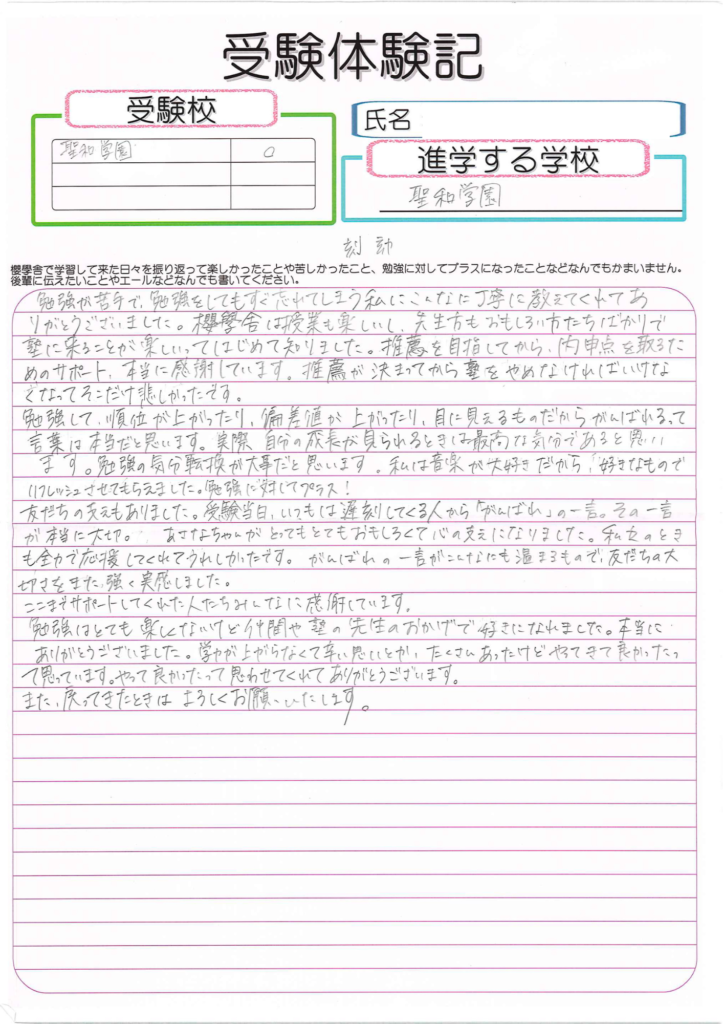 受験体験記
受験校
聖和学園 ○
氏名
進学する学校
聖和学園
櫻學舎で学習して来た日々を振り返って楽しかったことや苦しかったこと、勉強に対してプラスになったことなどなんでもかまいません。
後輩に伝えたいことやエールなどなんでも書いてください。
勉強が苦手で、勉強をしてもすぐ忘れてしまう私にこんなに丁寧に教えてくれてあ
りがとうございました。櫻學舎は授業も楽しいし、先生方もおもしろい方たちばかりで
塾に来ることが楽しいってはじめて知りました。推薦を目指してから、内申点を取るた
めのサポート、本当に感謝しています。推薦が決まってから塾をやめなければいけな
くなってそこだけ悲しかったです。
勉強して、順位が上がったり、偏差値が上がったり、目に見えるものだからがんばれるって
言葉は本当だと思います。実際、自分の成長が見られるときは最高な気分であると思い
ます。勉強の気分転換が大事だと思います。私は音楽が大好きだから、好きなもので
リフレッシュさせてもらえました。勉強に対してプラス!
友だちの支えもありました。受験当日、いつもは遅刻してくる人から「がんばれ」の一言。その一言
が本当に大切。 あさなちゃんがとってもとてもおもしろくて心の支えになりました。私立のとき
も全力で応援してくれてうれしかったです。がんばれの一言がこんなにも温まるもので、友だちの大
切さをまた、強く実感しました。
ここまでサポートしてくれた人たちみんなに感謝しています。
勉強はとても楽しくないけど仲間や塾の先生のおかげで好きになれました。本当に
ありがとうございました。学力が上がらなくて辛い思いとか、たくさんあったけどやってきて良かったっ
て思っています。やって良かったって思わせてくれてありがとうございます。
また、戻ってきたときはよろしくお願いいたします。